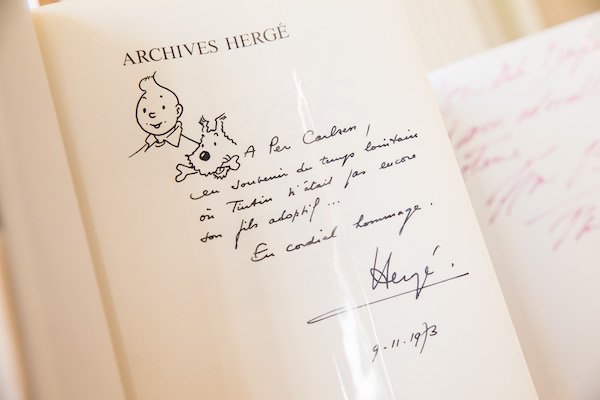 ARCHIVES HERGÉ
A Per Carlsen,
en souvenir du temps lointain
où Tintin n'était pas encore
son fils adoptif...
En cordial hommage.
Hergé.
9.11.1973